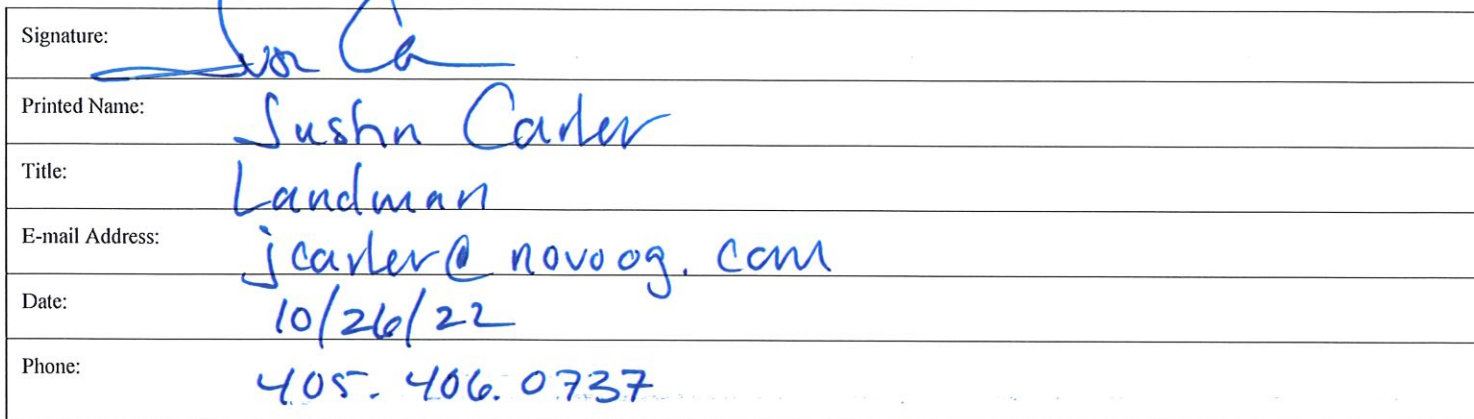 Signature:
Printed Name: Justin Carter
Title: Landman
E-mail Address: jcarter@novoog.com
Date: 10/26/22
Phone: 405.406.0737